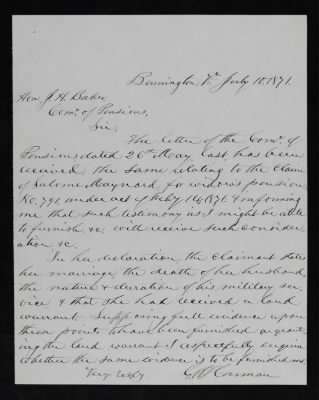 Bennington, Vt July 10. 1871.
Hon. J. H. Baker
Comr. of Pensions,
Sir,
The letter of the Comr. of
Pensions dated 26th May last, has been
received, the same relating to the claim
of Salome Maynard, for widow's pension,
No. 791, under act of Feby 14, 1871, & informing
me that such testimony as I might be able
to furnish &c will receive such consider
ation, &c.
In her declaration the claimant states
her marriage, the death of her husband,
the nature & duration of his military ser
vice, & that she had received a land
warrant. Supposing full evidence upon
these points to have been furnished on grant
ing the land warrant I respectfully enquire
whether the same evidence is to be furnished now.
Very respy.